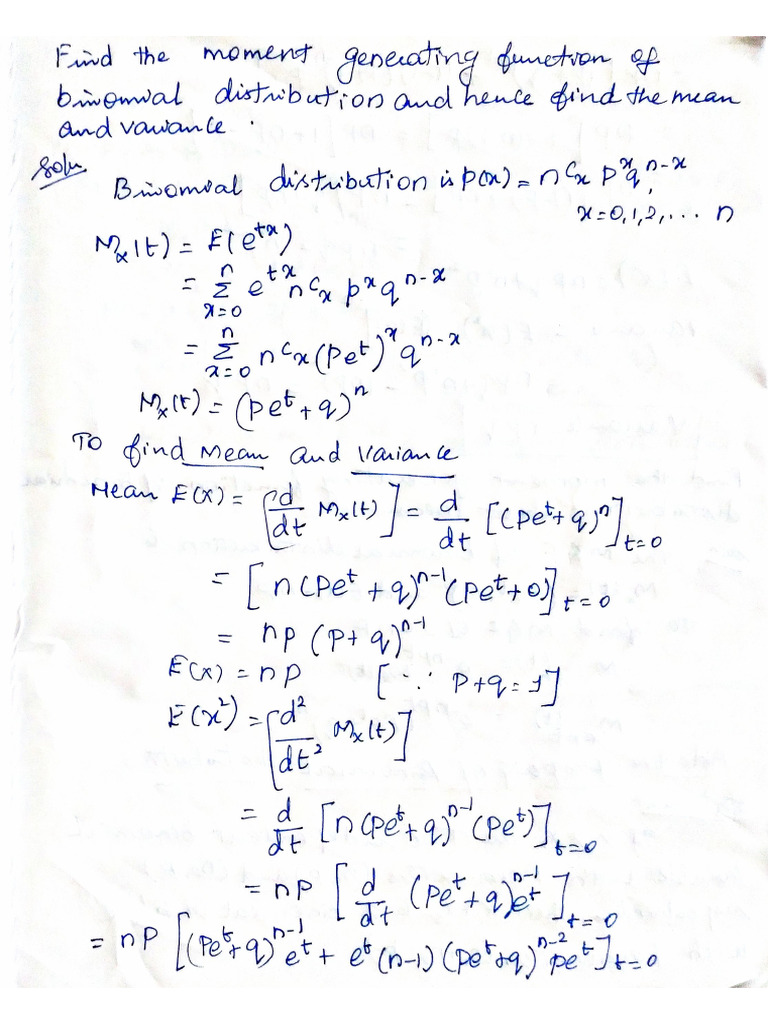 Find the moment generating function of
binomial distribution and hence find the mean
and variance.
Soln
Binomial distribution is p(x) = nCx p^x q^{n-x},
x = 0, 1, 2, ... n
M_x(t) = E(e^{tx})
= Σ_{x=0}^{n} e^{tx} nCx p^x q^{n-x}
= Σ_{x=0}^{n} nCx (pe^t)^x q^{n-x}
M_x(t) = (pe^t + q)^n
To find Mean and Variance
Mean E(x) = [d/dt M_x(t)] = d/dt [(pe^t + q)^n]_{t=0}
= [n(pe^t + q)^{n-1} (pe^t + 0)]_{t=0}
= np (p + q)^{n-1}
E(x) = np [∵ p + q = 1]
E(x^2) = [d^2/dt^2 M_x(t)]
= d/dt [n(pe^t + q)^{n-1} (pe^t)]_{t=0}
= np [d/dt (pe^t + q)^{n-1} e^t]_{t=0}
= np [(pe^t + q)^{n-1} e^t + e^t (n-1) (pe^t + q)^{n-2} pe^t]_{t=0}